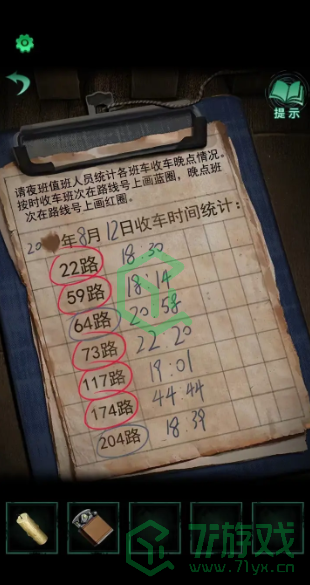 提示
请夜班值班人员统计各班车收车晚点情况。
按时收车班次在路线号上画蓝圈，晚点班
次在路线号上画红圈。
20 年8月12日收车时间统计：
22路 18:30
59路 18:14
64路 20:58
73路 22:20
117路 19:01
174路 44:44
204路 18:39
7i游戏
www.71yx.cn